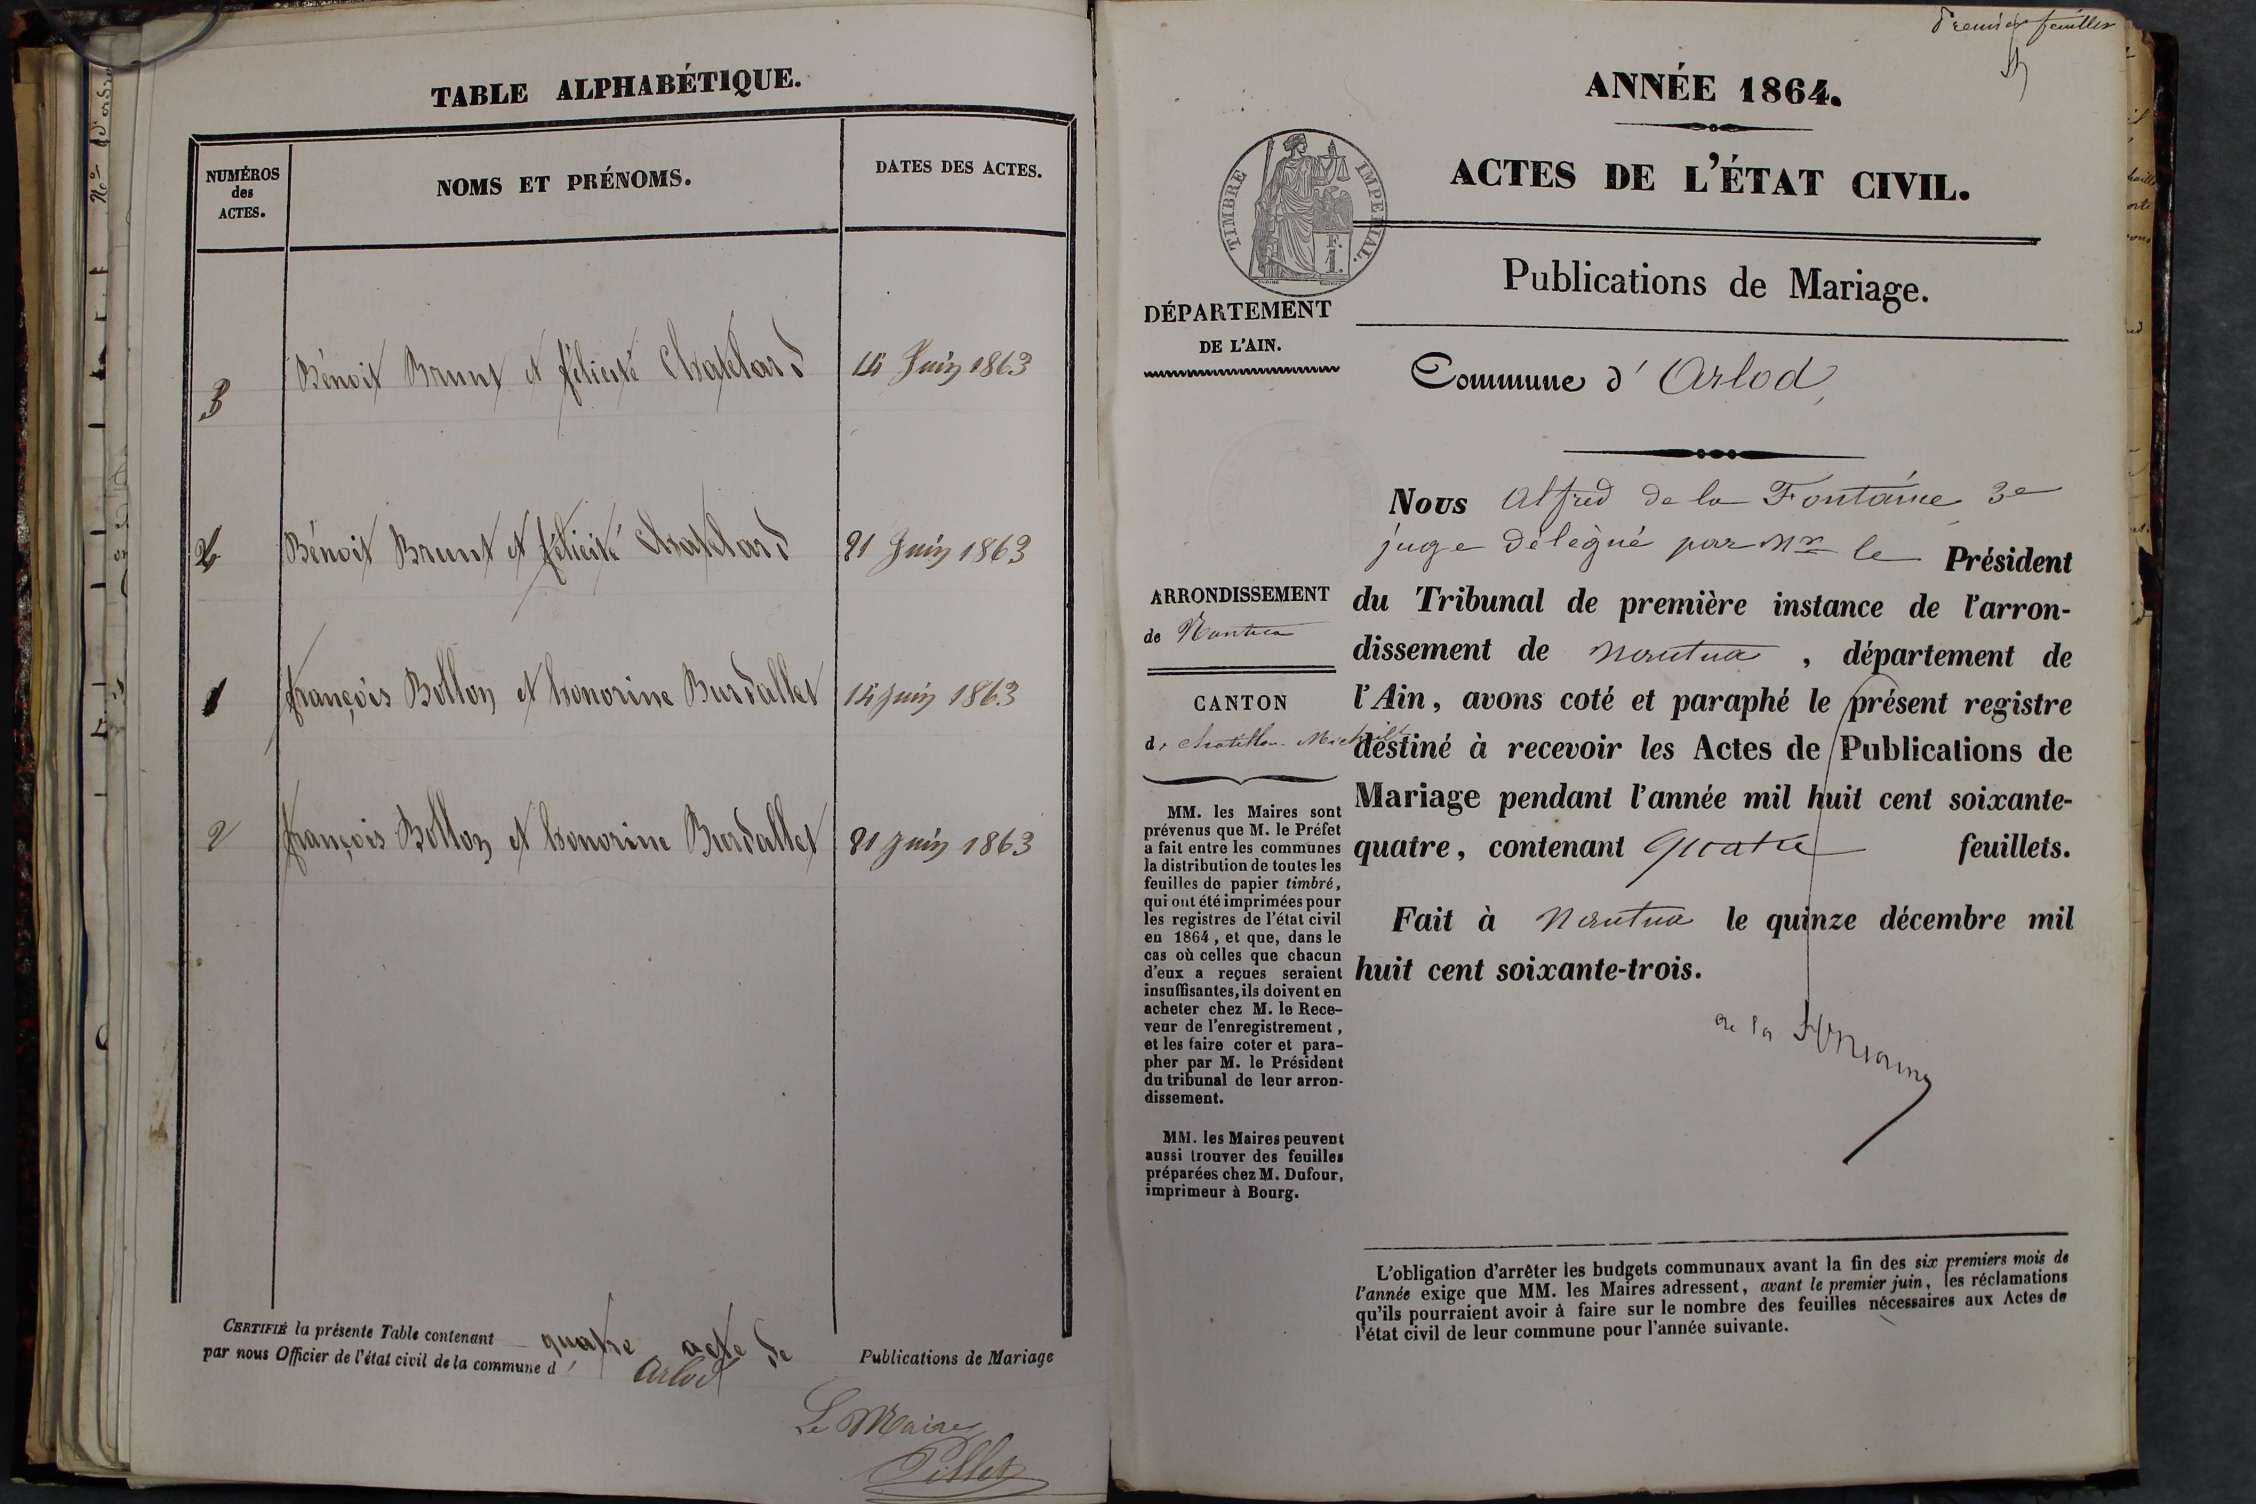 TABLE ALPHABÉTIQUE.
NUMÉROS
des
ACTES.
NOMS ET PRÉNOMS.
DATES DES ACTES.
3 Bénoit Brunet et félicité Chatelard 14 Juin 1863
4 Bénoit Brunet et félicité Chatelard 21 Juin 1863
1 françois Bollon et honorine Burdallet 14 juin 1863
2 françois Bollon et honorine Burdallet 21 juin 1863
CERTIFIÉ la présente Table contenant quatre acte de Publications de Mariage
par nous Officier de l'état civil de la commune d' Arlod
Le Maire
Pillet
Premier feuillet
ANNÉE 1864.
ACTES DE L'ÉTAT CIVIL.
TIMBRE IMPERIAL.
F.
1.
Publications de Mariage.
DÉPARTEMENT
DE L'AIN.
Commune d' Arlod,
Nous Alfred de la Fontaine 3e
juge délégué par Mr le Président
du Tribunal de première instance de l'arron-
dissement de nantua, département de
l'Ain, avons coté et paraphé le présent registre
destiné à recevoir les Actes de Publications de
Mariage pendant l'année mil huit cent soixante-
quatre, contenant quatre feuillets.
Fait à nantua le quinze décembre mil
huit cent soixante-trois.
de la Fontaine
ARRONDISSEMENT
de Nantua
CANTON
de chatillon Michaille
MM. les Maires sont
prévenus que M. le Préfet
a fait entre les communes
la distribution de toutes les
feuilles de papier timbré,
qui ont été imprimées pour
les registres de l'état civil
en 1864, et que, dans le
cas où celles que chacun
d'eux a reçues seraient
insuffisantes, ils doivent en
acheter chez M. le Rece-
veur de l'enregistrement,
et les faire coter et para-
pher par M. le Président
du tribunal de leur arron-
dissement.
MM. les Maires peuvent
aussi trouver des feuilles
préparées chez M. Dufour,
imprimeur à Bourg.
L'obligation d'arrêter les budgets communaux avant la fin des six premiers mois de
l'année exige que MM. les Maires adressent, avant le premier juin, les réclamations
qu'ils pourraient avoir à faire sur le nombre des feuilles nécessaires aux Actes de
l'état civil de leur commune pour l'année suivante.